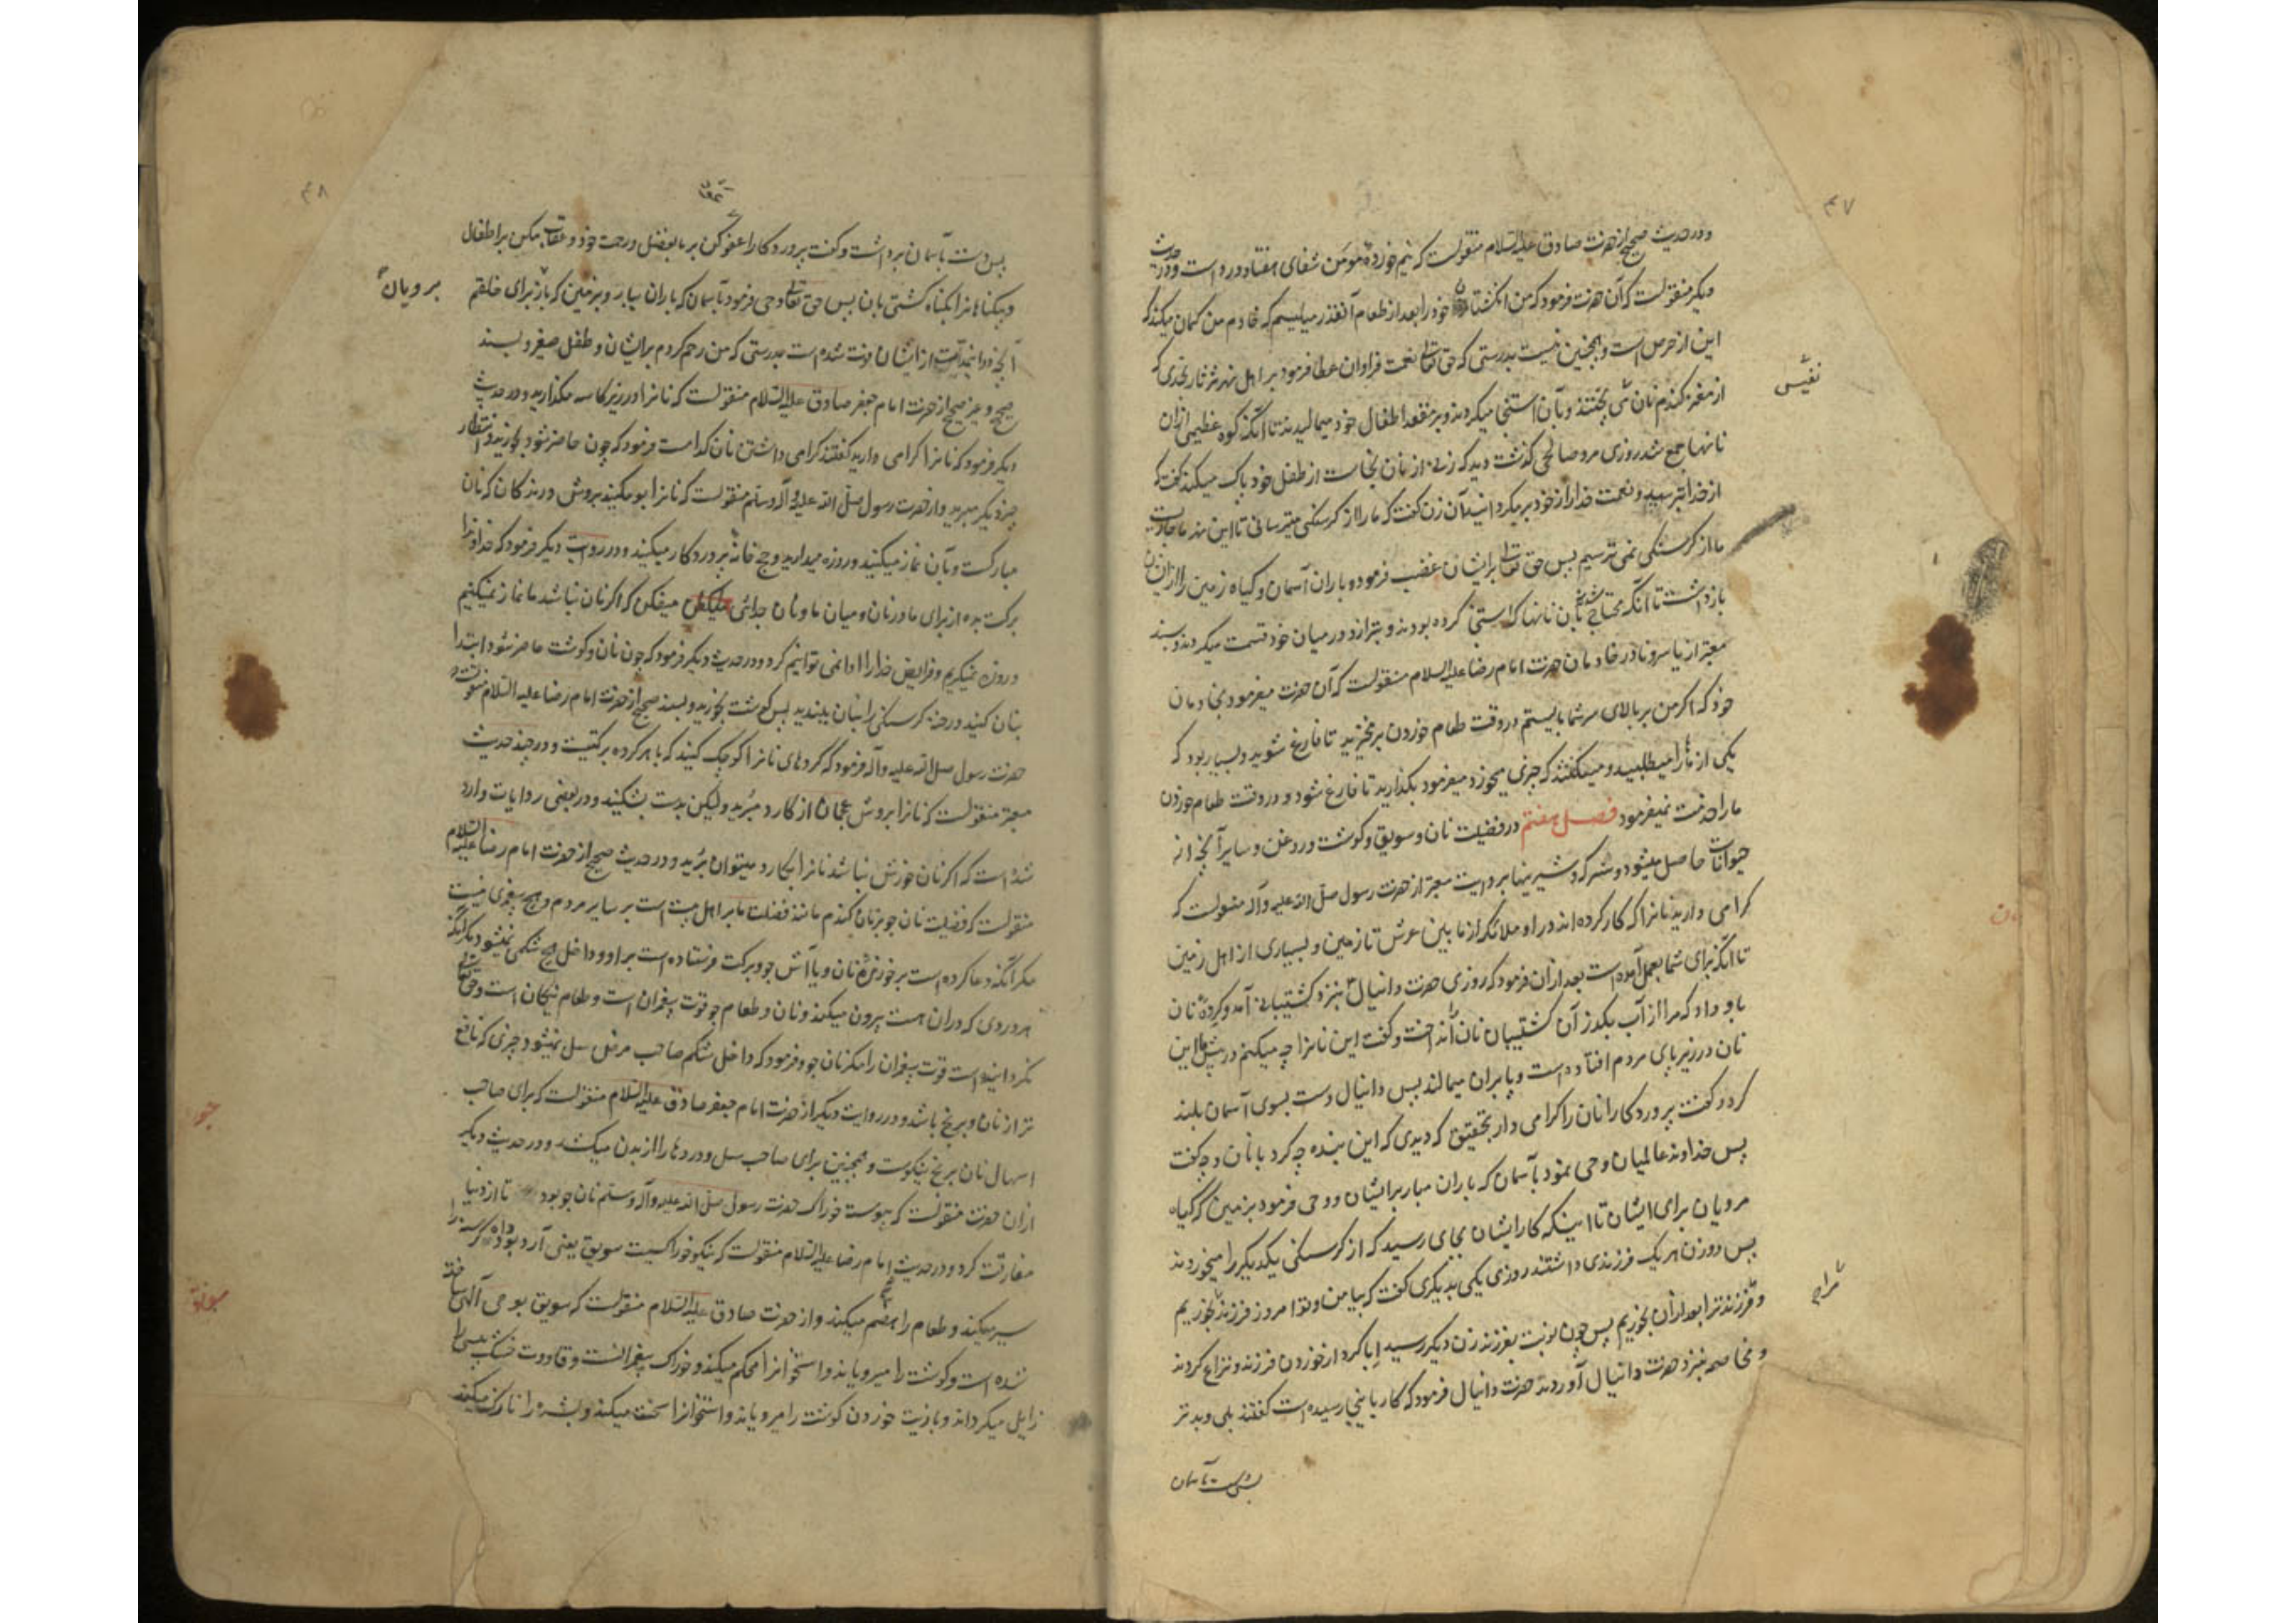 ۴۷
و در حدیث صحیح از حضرت صادق علیه السلام منقولست که نیم خوردهٔ مومن شفای هفتاد درد است و در حدیث
دیکر منقولست که آن حضرت فرمود که من انکشتان خود را بعد از طعام آنقدر میلیسم که خادم من کمان میکند که
این از حرص است و همچنین نیست بدرستی که حق تعالی نعمت فراوان عطا فرمود بر اهل نهر ثرثار بحدی که
از مغز کندم نان می پختند و بآن استنجا میکردند و بر مقعد اطفال خود میمالیدند تا آنکه کوه عظیمی از ان
نفیس
نانها جمع شد روزی مرد صالحی کذشت دید که زنی از نان نجاست از طفل خود پاک میکند کفت که
از خدا بترسید و نعمت خدا را از خود بر مکردانید آن زن کفت که ما را از کرسنکی میترسانی تا این نهر ما جاریست
ما از کرسنکی نمی ترسیم پس حق تعالی بر ایشان غضب فرمود و باران آسمان و کیاه زمین را از ایشان
باز داشت تا آنکه محتاج شدند بآن نانها که استنجا کرده بودند و بترازو در میان خود قسمت میکردند و بسند
معتبر از یاسر و نادر خادمان حضرت امام رضا علیه السلام منقولست که آن حضرت میفرمود بخادمان
خود که اکر من بر بالای سر شما بایستم در وقت طعام خوردن بر مخیزید تا فارغ شوید و بسیار بود که
یکی از ما را میطلبید و میکفتند که چیزی میخورد میفرمود بکذارید تا فارغ شود و در وقت طعام خوردن
ما را خدمت نمیفرمود فصل هفتم در فضیلت نان و سویق و کوشت و روغن و سایر آنچه از
حیوانات حاصل میشود و سرکه و شیرینیها بروایت معتبر از حضرت رسول صلی الله علیه و آله منقولست که
کرامی دارید نانرا که کار کرده اند در او ملائکه از ما بین عرش تا زمین و بسیاری از اهل زمین
تا آنکه برای شما بعمل آمده است بعد از ان فرمود که روزی حضرت دانیال بنزد کشتیبانی آمد و کردهٔ نان
باو داد که مرا از آب بکذر آن کشتیبان نان را انداخت و کفت این نانرا چه میکنم در پیش ما این
نان در زیر پای مردم افتاده است و پا بران میمالند پس دانیال دست بسوی آسمان بلند
کرد و کفت پروردکارا نان را کرامی دار بتحقیق که دیدی که این بنده چه کرد با نان و چه کفت
پس خداوند عالمیان وحی نمود بآسمان که باران مبار بر ایشان و وحی فرمود بزمین که کیاه
مرویان برای ایشان تا اینکه کار ایشان بجای رسید که از کرسنکی یکدیکر را میخوردند
پس دو زن هر یک فرزندی داشتند روزی یکی بدیکری کفت که بیا من و تو امروز فرزند بخوریم
مرا
و فرزند ترا بعد از ان بخوریم پس چون نوبت بفرزند زن دیکر رسید ابا کرد از خوردن فرزند و نزاع کردند
و مخاصمه بنزد حضرت دانیال آوردند حضرت دانیال فرمود که کار باینجا رسیده است کفتند بلی و بدتر
پس دست بآسمان
۴۸
پس دست بآسمان برداشت و کفت پروردکارا عفو کن بر ما بفضل و رحمت خود و عقاب مکن بر اطفال
و بیکناهانرا بکناه کشتی بان پس حق تعالی وحی فرمود بآسمان که باران ببار و بر زمین که باز برای خلقم
برویان
آنچه در این مدت از ایشان فوت شده است بدرستی که من رحم کردم بر ایشان و طفل صغیر و بسند
صحیح و غیر صحیح از حضرت امام جعفر صادق علیه السلام منقولست که نانرا در زیر کاسه مکذارید و در حدیث
دیکر فرمود که نانرا کرامی دارید کفتند کرامی داشتن نان کدامست فرمود که چون حاضر شود بخورید و انتظار
چیز دیکر مبرید و از حضرت رسول صلی الله علیه و آله وسلم منقولست که نانرا بو مکنید بروش درندکان که نان
مبارکست و بآن نماز میکنید و روزه میدارید و حج خانهٔ پروردکار میکنید و در روایت دیکر فرمود که خداوندا
برکت بده از برای ما در نان و میان ما و نان جدائی میفکن که اکر نان نباشد ما نماز نمیکنیم
و روزه نمیکریم و فرایض خدا را ادا نمی توانیم کرد و در حدیث دیکر فرمود که چون نان و کوشت حاضر شود ابتدا
بنان کنید و رخنه کرسنکی را بنان ببندید پس کوشت بخورید و بسند صحیح از حضرت امام رضا علیه السلام منقولست که
حضرت رسول صلی الله علیه و آله فرمود که کردهای نانرا کوچک کنید که با هر کرده برکتیست و در چند حدیث
معتبر منقولست که نانرا بروش عجمان از کارد مبرید ولیکن بدست بشکنید و در بعضی روایات وارد
شده است که اکر نان خورش نباشد نانرا بکارد میتوان برید و در حدیث صحیح از حضرت امام رضا علیه السلام
منقولست که فضیلت نان جو بر نان کندم مانند فضلت ما بر اهل بیت است بر سایر مردم و هیچ پیغمبری نیست
مکر آنکه دعا کرده است بر خورندهٔ نان و یا آش جو و برکت فرستاده است بر او و داخل هیچ شکمی نمیشود مکر آنکه
هر دردی که در ان هست بیرون میکند و نان و طعام جو قوت پیغمبران است و طعام نیکان است و حق تعالی
نکردانیده است قوت پیغمبران را مکر نان جو و فرمود که داخل شکم صاحب مرض سل نمیشود چیزی که نافع
تر از نان و برنج باشد و در روایت دیکر از حضرت امام جعفر صادق علیه السلام منقولست که برای صاحب
اسهال نان برنج نیکوست و همچنین برای صاحب سل و دردها را از بدن میکشد و در حدیث دیکر
جو
از ان حضرت منقولست که پیوسته خوراک حضرت رسول صلی الله علیه و آله وسلم نان جو بود تا از دنیا
مفارقت کرد و در حدیث امام رضا علیه السلام منقولست که نیکو خوراکیست سویق یعنی آرد بو داده کرسنه را
سویق
سیر میکند و طعام را هضم میکند و از حضرت صادق علیه السلام منقولست که سویق بوحی آلهی ساخته
شده است و کوشت را میرویاند و استخوانرا محکم میکند و خوراک پیغمبرانست و قاووت خشک پیسی را
زایل میکرداند و بازیت خوردن کوشت را میرویاند و استخوانرا سخت میکند و بشره را نازک میکند